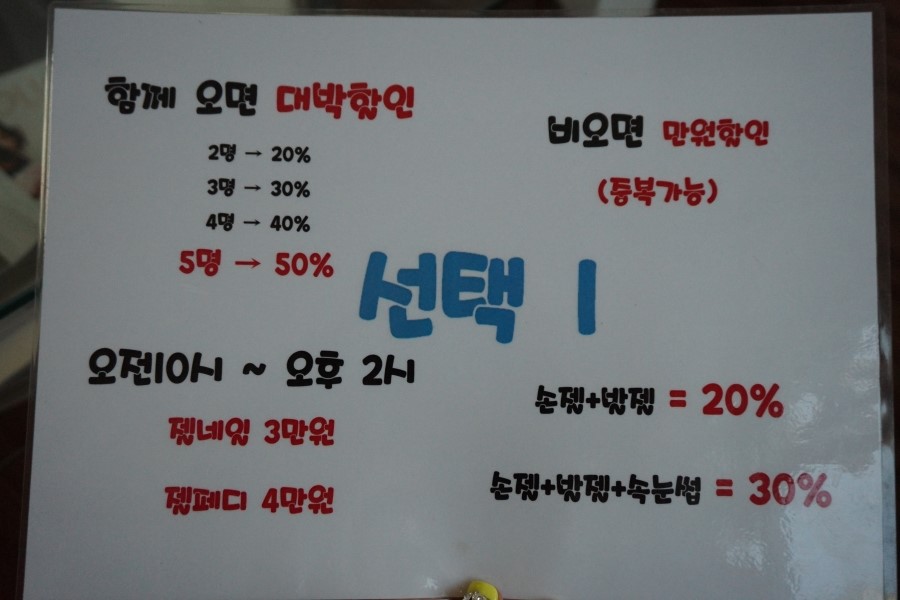 함께 오면 대박할인
2명 → 20%
3명 → 30%
4명 → 40%
5명 → 50%
비오면 만원할인
(중복가능)
선택 1
오전10시 ~ 오후 2시
젤네일 3만원
젤페디 4만원
손젤+발젤 = 20%
손젤+발젤+속눈썹 = 30%